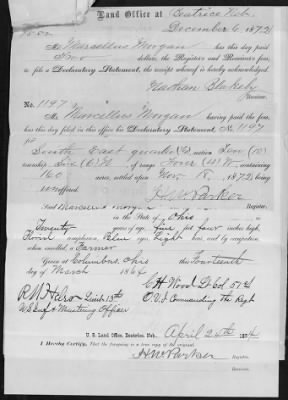 Land Office at Beatrice Neb.
December 6, 1872
Mr. Marcellus Morgan has this day paid
Two dollars, the Register and Receivers fees,
to file a Declaratory Statement, the receipt whereof is hereby acknowledged.
Nathan Blakely
Receiver.
No. 1197
Mr. Marcellus Morgan having paid the fees,
has this day filed in this office his Declaratory Statement, No. 1197
for South East quarter of section Ten (10)
township Six (6) N of range Four W containing
160 acres, settled upon Nov. 8, 1872, being
unoffered
H W Parker
Register.
in the State of Ohio
Twenty years of age, five feet four inches high,
Florid complexion, Blue eyes, Light hair, and by occupation
when enrolled, a Farmer
Given at Columbus Ohio the Fourteenth
day of March 1864
C H Wood Lt Col 51st
O. V. I Commanding the Regt
Lieut 15th
U S Inf & Mustering Officer
U. S. Land Office, Beatrice, Neb., April 24th 1874
I Hereby Certify, That the foregoing is a true copy of the original.
H W Parker
Register.
Receiver.